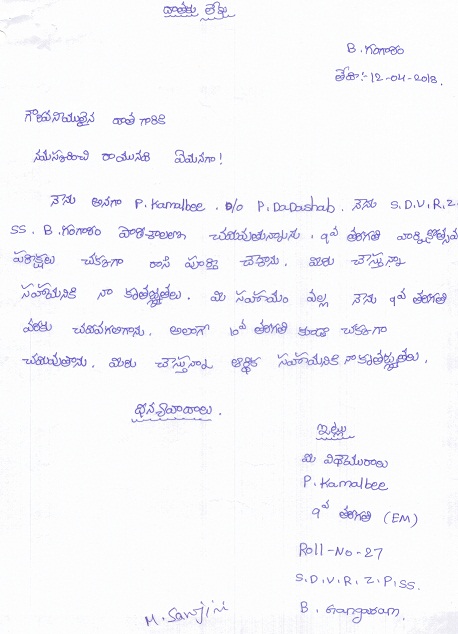 దాతకు లేఖ
B. గంగారం
తేది:- 12-04-2018.
గౌరవనీయులైన దాత గారికి
నమస్కరించి రాయునది ఏమనగా!
నేను అనగా P. Kamalbee. D/o P. DaDashab. నేను S.D.V.R.Z.
SS. B. గంగారం పాఠశాలలో చదువుతున్నాను. 9వ తరగతి వార్షికోత్సవ
పరీక్షలు చక్కగా రాసి పూర్తి చేశాను. మీరు చేస్తున్న
సహాయానికి నా కృతజ్ఞతలు. మీ సహాయం వల్ల నేను 9వ తరగతి
వరకు చదవగలిగాను. అలాగే 10వ తరగతి కూడా చక్కగా
చదువుతాను. మీరు చేస్తున్న ఆర్థిక సహాయానికి నా కృతజ్ఞతలు.
ధన్యవాదాలు.
ఇట్లు
మీ విధేయురాలు
P. Kamalbee
9వ తరగతి (EM)
Roll-No-27
S.D.V.R.Z.P.SS.
B. Gangaram.
M. Sarojini